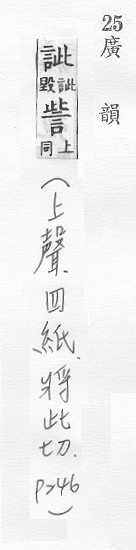 25廣韻
訿訿毀訾上同
(上聲、四紙、將此切、P246)